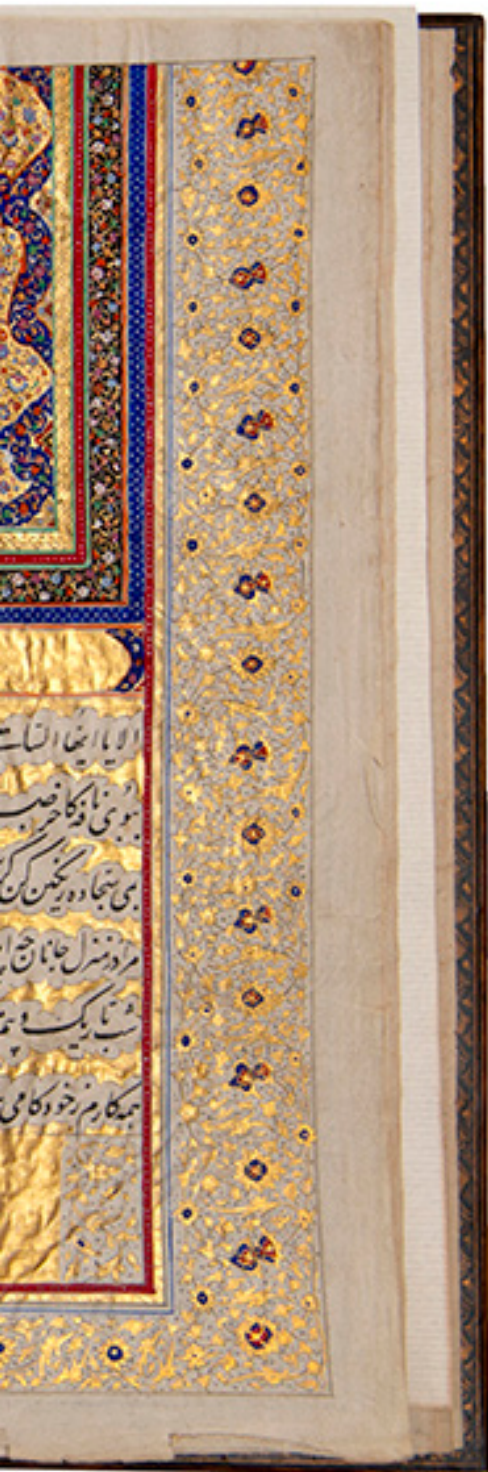 الا یا ایها
ببوی نافه کاخر
بمی سجاده رنگین کن
مرا در منزل جانان چه
شب تاریک و
همه کارم ز خود کامی